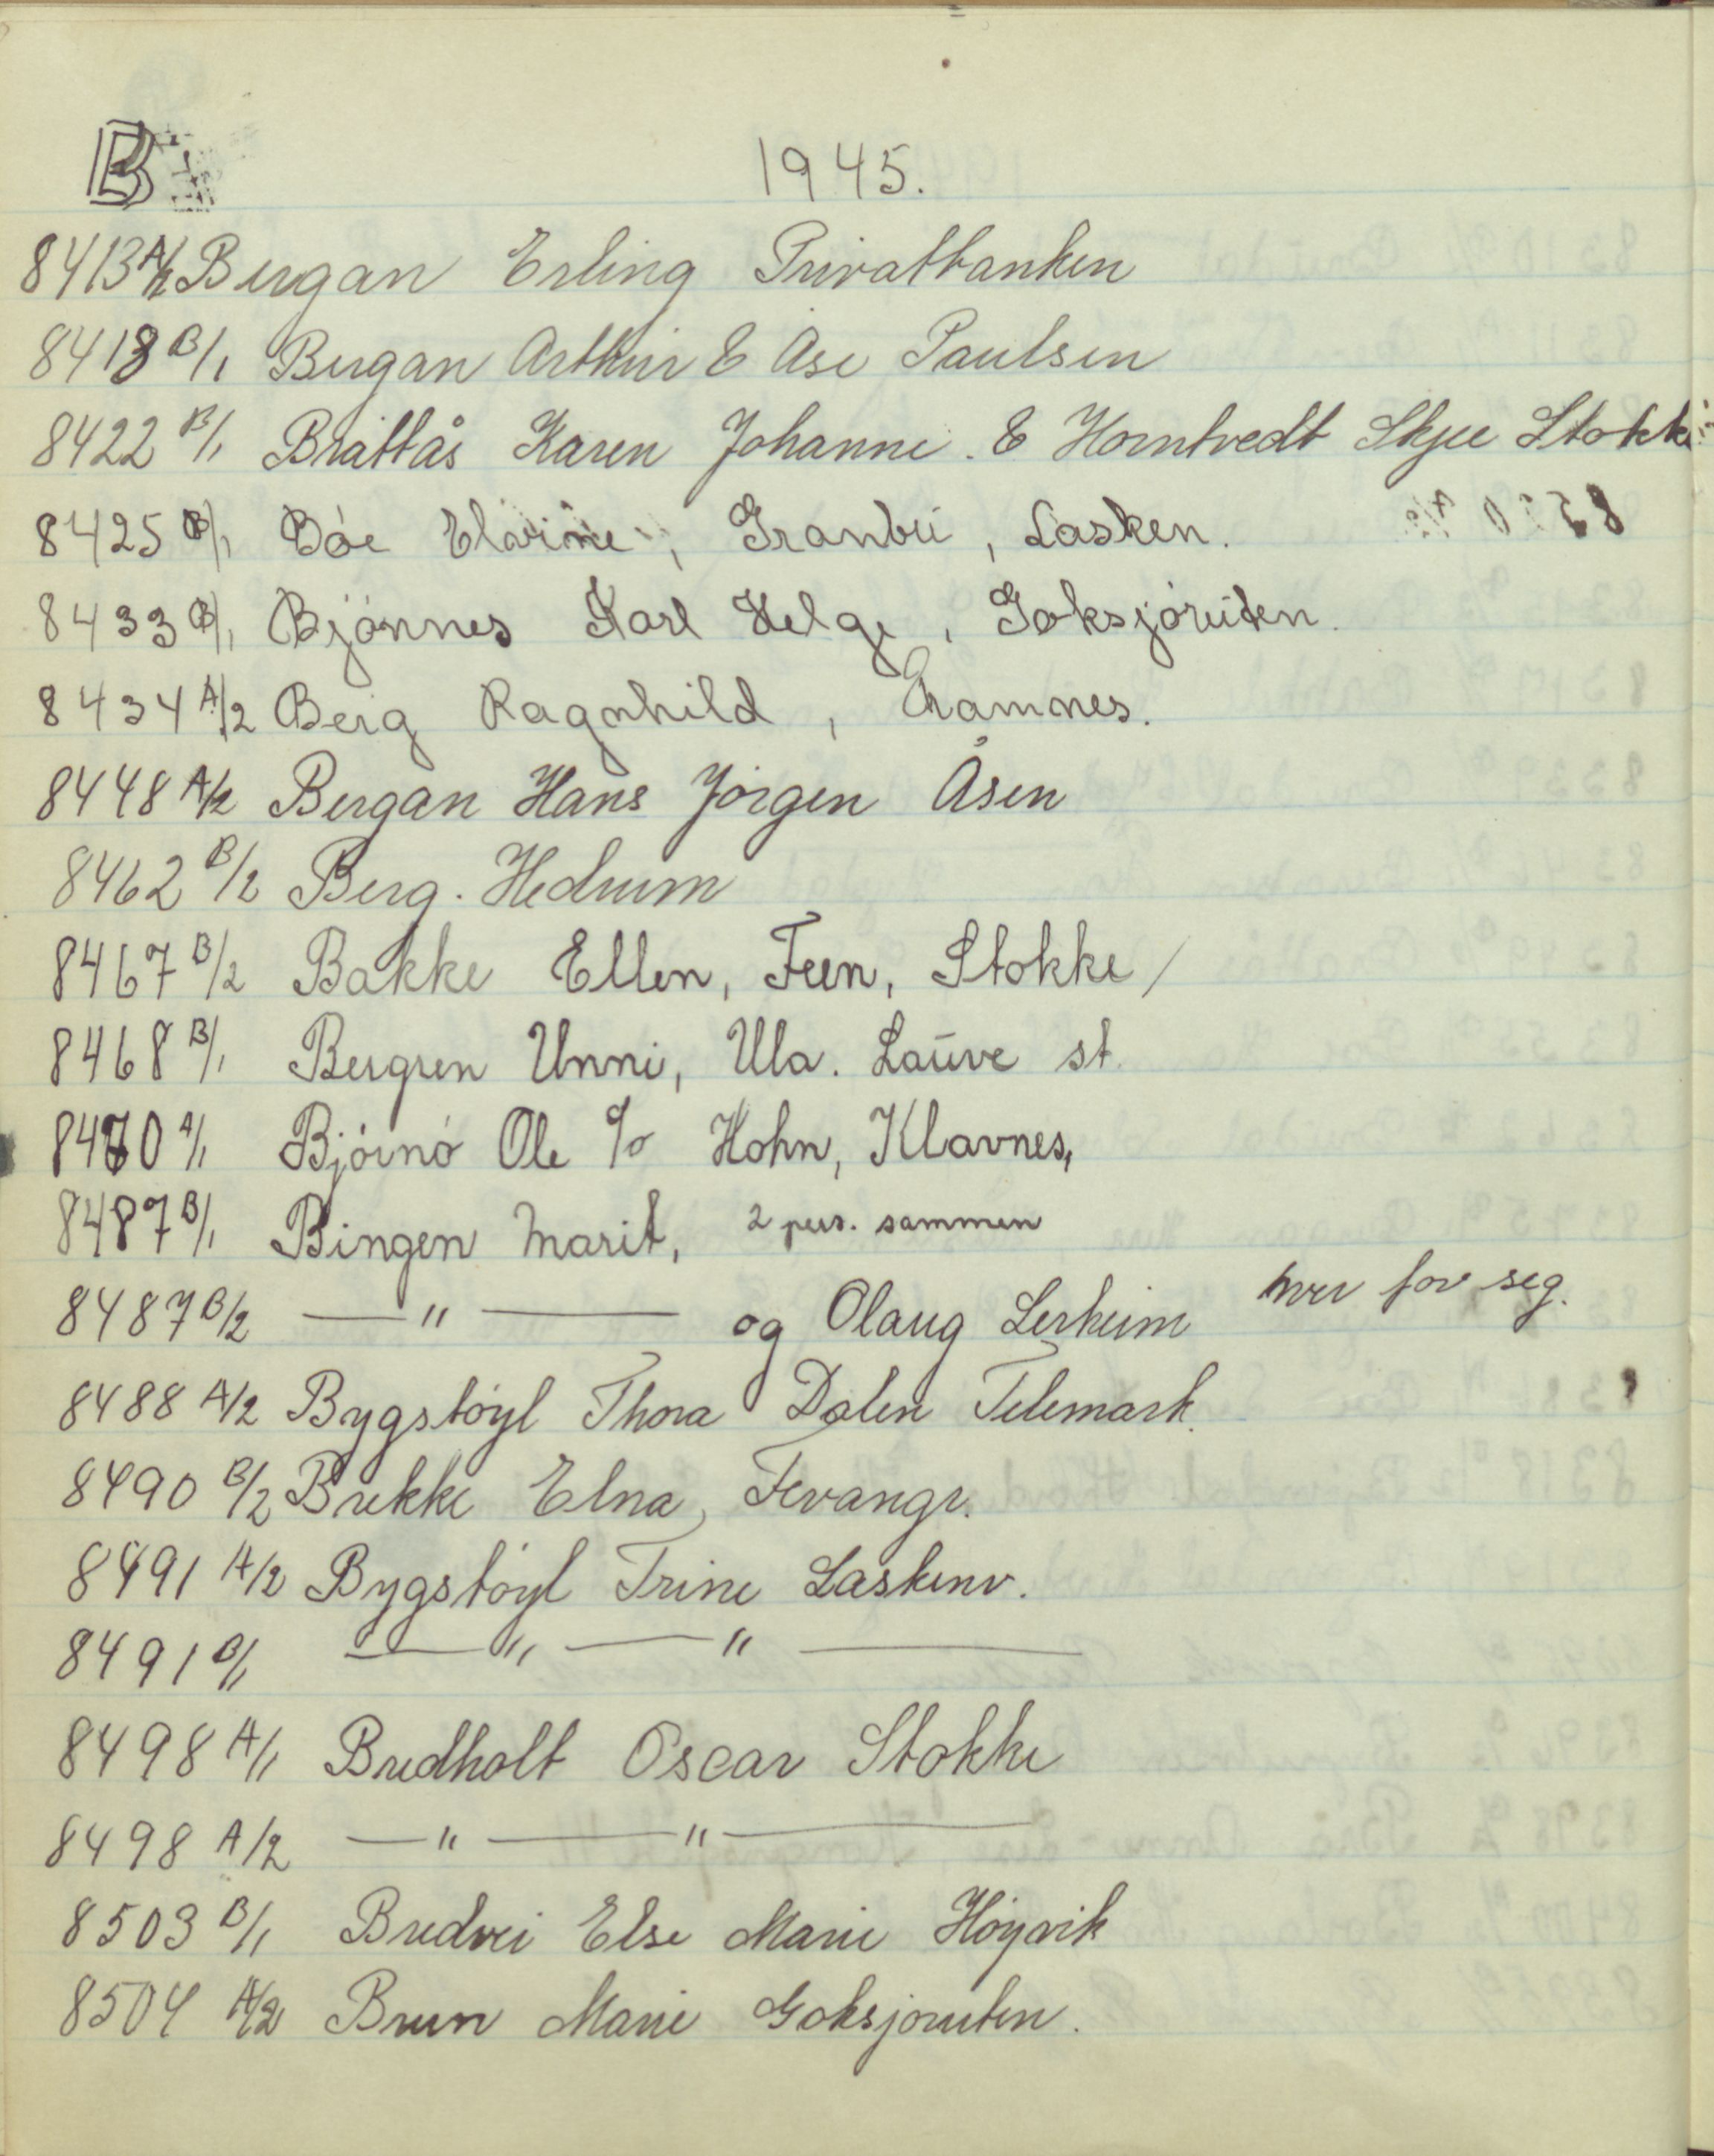 B 1945.
8413 A/2 Bergan Erling Privatbanken
8418 B/1 Bergan Arthur & Åse Paulsen
8422 B/1 Bråttås Karen Johanne & Horntvedt Skjee Stokke
8425 B/1 Bøe Elvine, Granbu, Lasken.
8433 B/1 Bjønnes Karl Helge, Goksjøruten.
8434 A/2 Berg Ragnhild, Ramnes.
8448 A/2 Bergan Hans Jørgen Åsen
8462 B/2 Berg. Hedrum
8467 B/2 Bakke Ellen, Feen, Stokke /
8468 B/1 Bergren Unni, Ula. Lauve st.
8470 A/1 Bjørnø Ole c/o Hohn, Klavnes,
8487 B/1 Bingen Marit, 2 pers. sammen
8487 B/2 — " — og Olaug Lerheim hver for seg.
8488 A/2 Bygstøyl Thora Dalen Telemark.
8490 B/2 Brekke Elna, Fevangr.
8491 A/2 Bygstøyl Trine Laskenv.
8491 B/1 — " — " —
8498 A/1 Bredholt Oscar Stokke
8498 A/2 — " — " —
8503 B/1 Bredvei Else Marie Høyvik
8504 A/2 Brun Marie Goksjøruten.